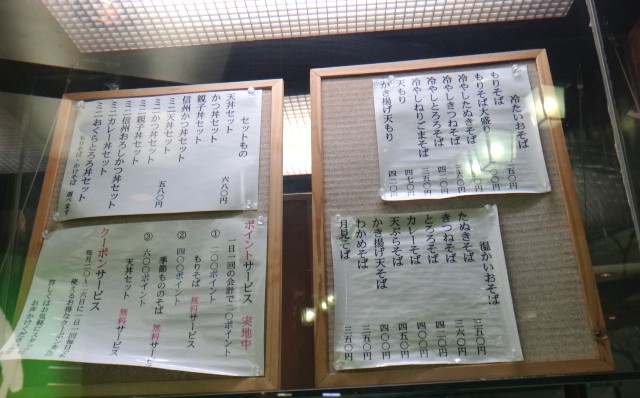 冷たいおそば
もりそば
もりそば大盛り
冷やしたぬきそば
冷やしきつねそば
冷やしとろろそば
冷やしねりごまそば
天もり 四七〇円
かき揚げ天もり 四二〇円
温かいおそば
たぬきそば 三五〇円
きつねそば 三六〇円
とろろそば 四二〇円
カレーそば 四〇〇円
天ぷらそば 四五〇円
かき揚げ天そば 四〇〇円
わかめそば 三五〇円
月見そば 三五〇円
セットもの
天丼セット 六八〇円
かつ丼セット
親子丼セット
信州かつ丼セット
ミニ天丼セット 五八〇円
ミニかつ丼セット
ミニ親子丼セット
ミニ信州おろしかつ丼セット
ミニカレー丼セット
ミニおくらとろろ丼セット
もりそば・かけそば 選べます
ポイントサービス 実施中
一日一回の会計で二〇ポイント
① 二〇〇ポイント
もりそば 無料サービス
② 四〇〇ポイント
季節もののそば 無料サービス
③ 六〇〇ポイント
天丼セット 無料サービス
クーポンサービス